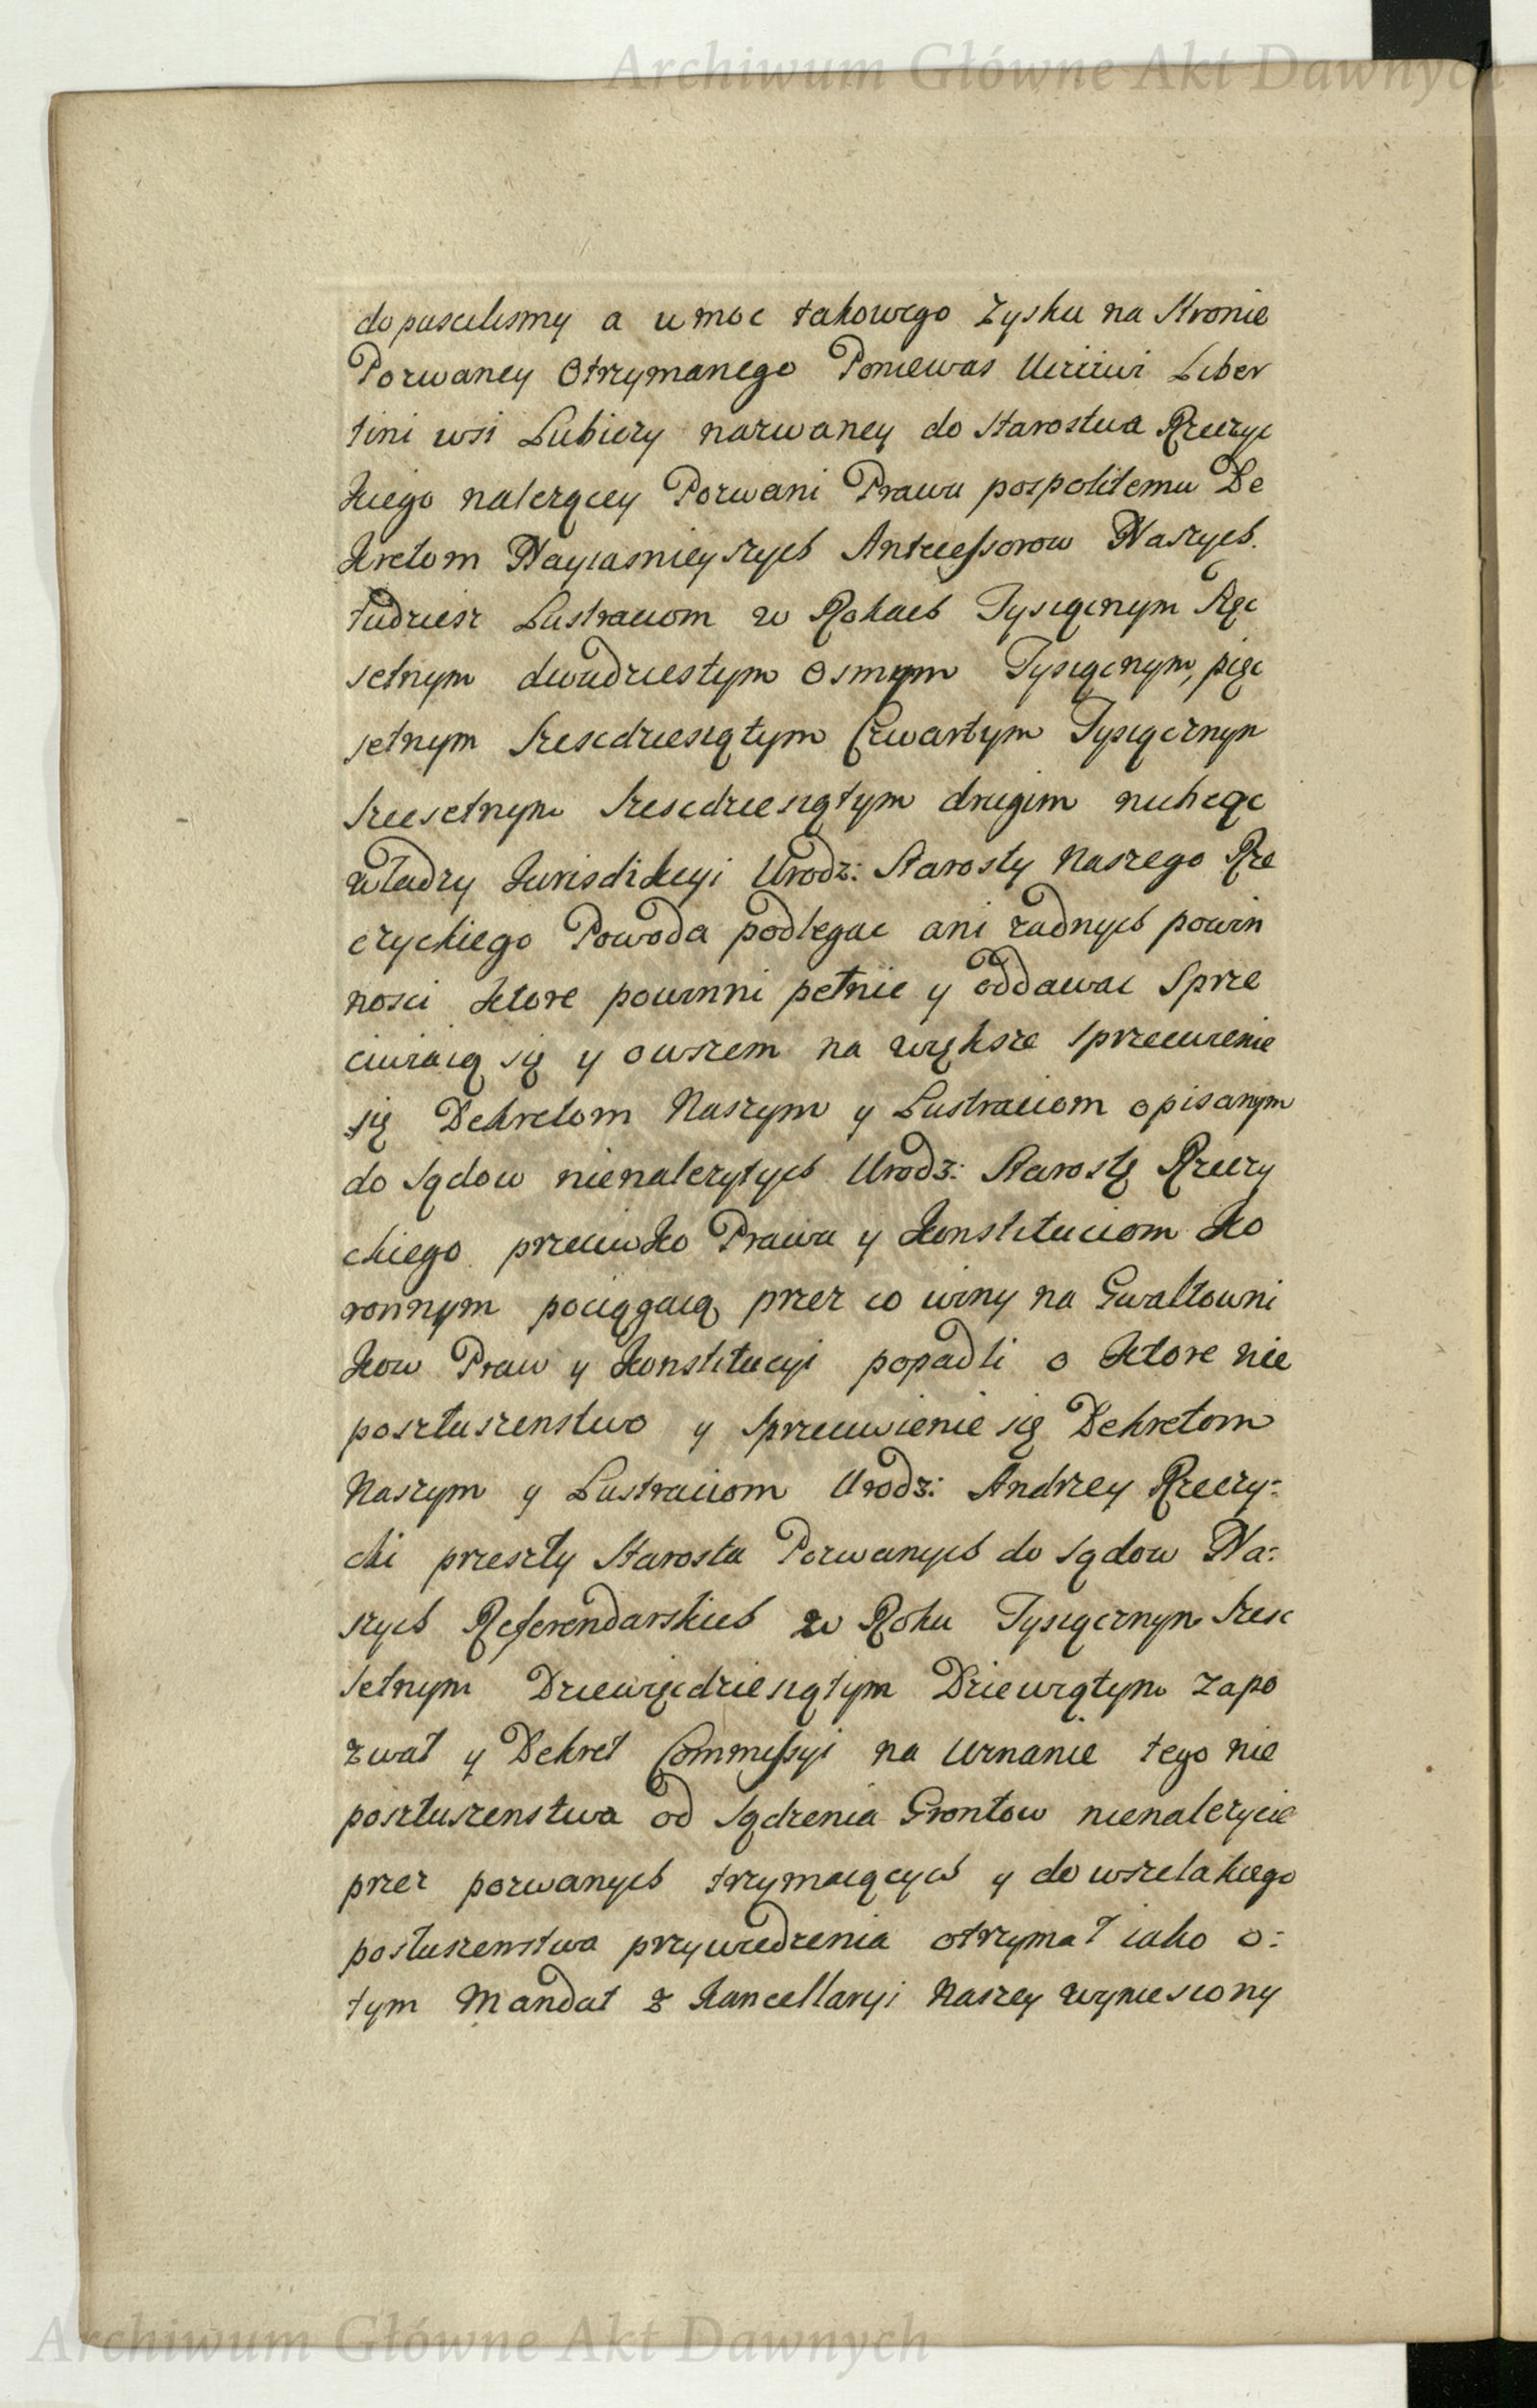 Archiwum Główne Akt Dawnych
dopuscilismy a w moc takowego Zysku na Stronie
Pozwaney Otrzymanego Poniewas Uczciwi Liber
tini wsi Lubiczy nazwaney do Starostwa Rzeczyc
kiego nalezącey Pozwani Prawu pospolitemu De
kretom Nayiasnieyszych Antecessorow Naszych.
tudziesz Lustraciom w Rokach Tysiącznym Pięc
setnym dwudziestym osmym Tysiącznym, pięc
setnym szescdziesiątym Czwartym Tysiącznym
szescsetnym szescdziesiątym drugim niechcąc
władzy Jurisdikcyi Urodz: Starosty Naszego Rze
czyckiego Powoda podlegac ani zadnych powin
nosci ktore powinni pełnic y oddawac Sprze
ciwiaią się y owszem na większe sprzeciwienie
się Dekretom Naszym y Lustraciom opisanym
do sądow nienalezytych Urodz: Starostę Rzeczy
ckiego przeciwko Prawu y Konstituciom Ko
ronnym pociągaią przez co winy na Gwałtowni
kow Praw y Konstitucyi popadli o ktore nie
poszłuszenstwo y Sprzeciwienie się Dekretom
Naszym y Lustraciom Urodz: Andrzey Rzeczy:
cki przeszły Starosta Pozwanych do sądow Na:
szych Referendarskich w Roku Tysiącznym szesc
setnym Dziewięcdziesiątym Dziewiątym zapo
zwał y Dekret Commissyi na Uznanie tego nie
poszłuszenstwa od sądzenia Grontow nienalezycie
przez pozwanych trzymaiących y do wszelakiego
posłuszenstwa przywiedzenia otrzymał iako o:
tym Mandat z Kancellaryi Naszey wyniesiony
Archiwum Główne Akt Dawnych